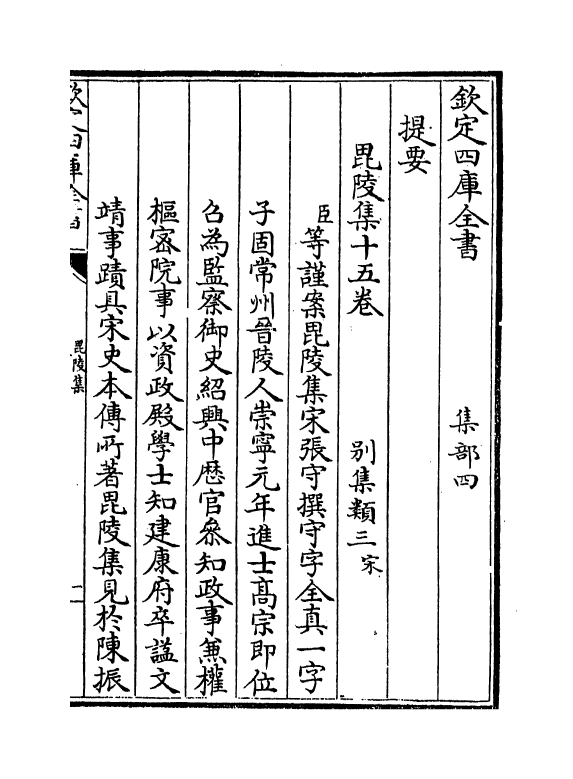 欽定四庫全書　集部四
提要
毘陵集十五卷　别集類三宋
臣等謹案毘陵集宋張守撰守字全真一字
子固常州晉陵人崇寧元年進士髙宗即位
召為監察御史紹興中歴官參知政事兼權
樞密院事以資政殿學士知建康府卒諡文
靖事蹟具宋史本傳所著毘陵集見於陳振
毘陵集